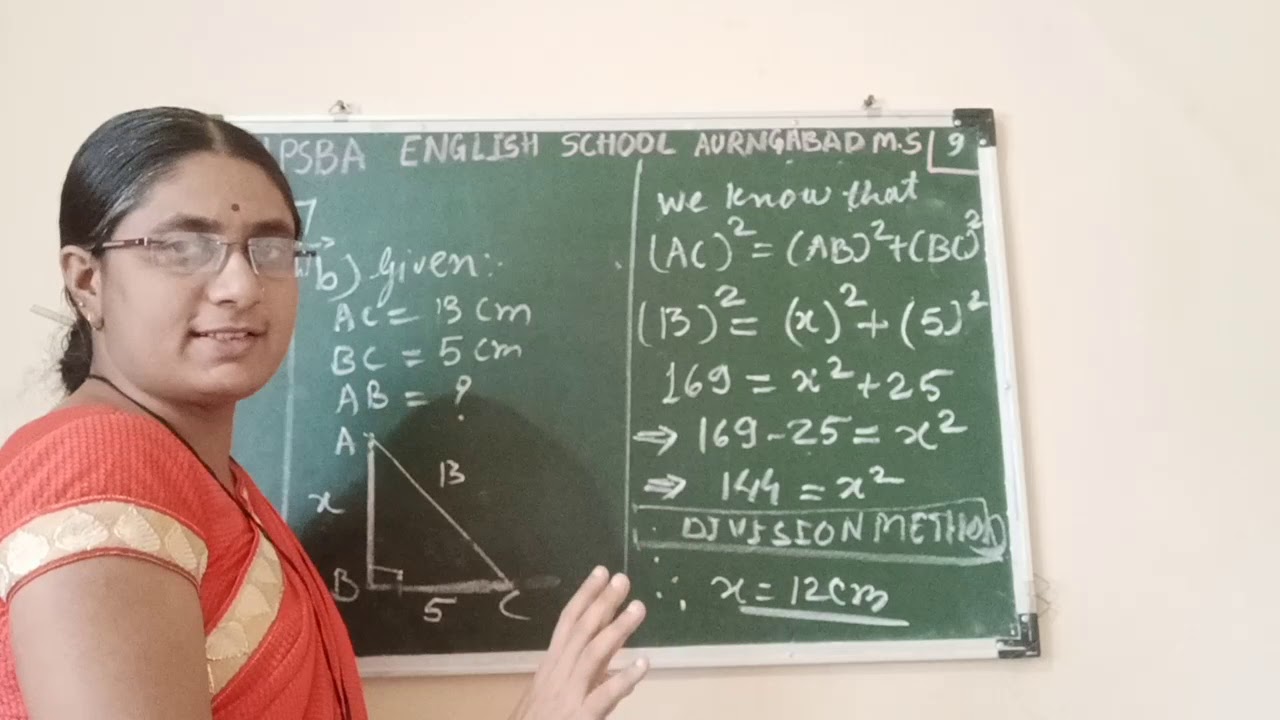 PSBA ENGLISH SCHOOL AURNGABAD M.S 9
b) Given:
AC = 13 cm
BC = 5 cm
AB = ?
A
13
x
B
5
C
we know that
(AC)² = (AB)² + (BC)²
(13)² = (x)² + (5)²
169 = x² + 25
⇒ 169 - 25 = x²
⇒ 144 = x²
DIVISSION METHOD
∴ x = 12 cm